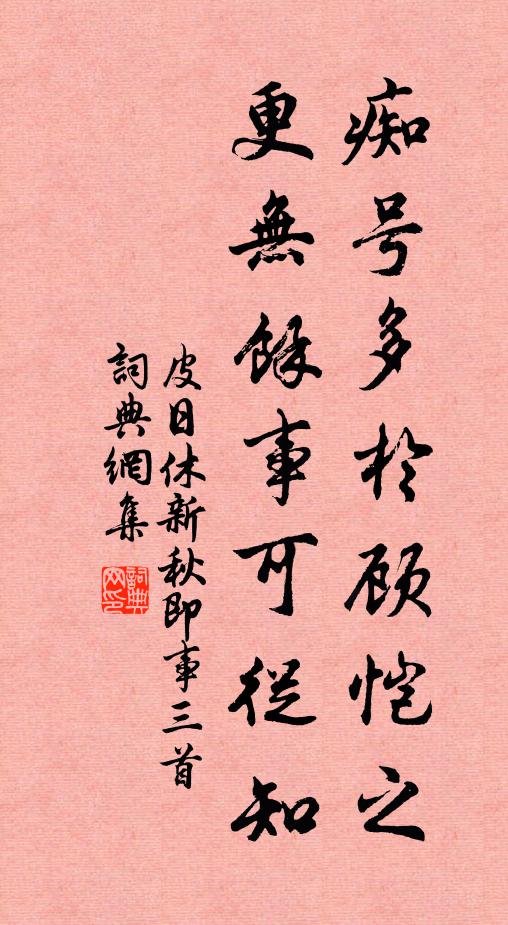 痴号多於顾恺之
更無餘事可從知
皮日休新秋即事三首
詞典網集
詞典网印